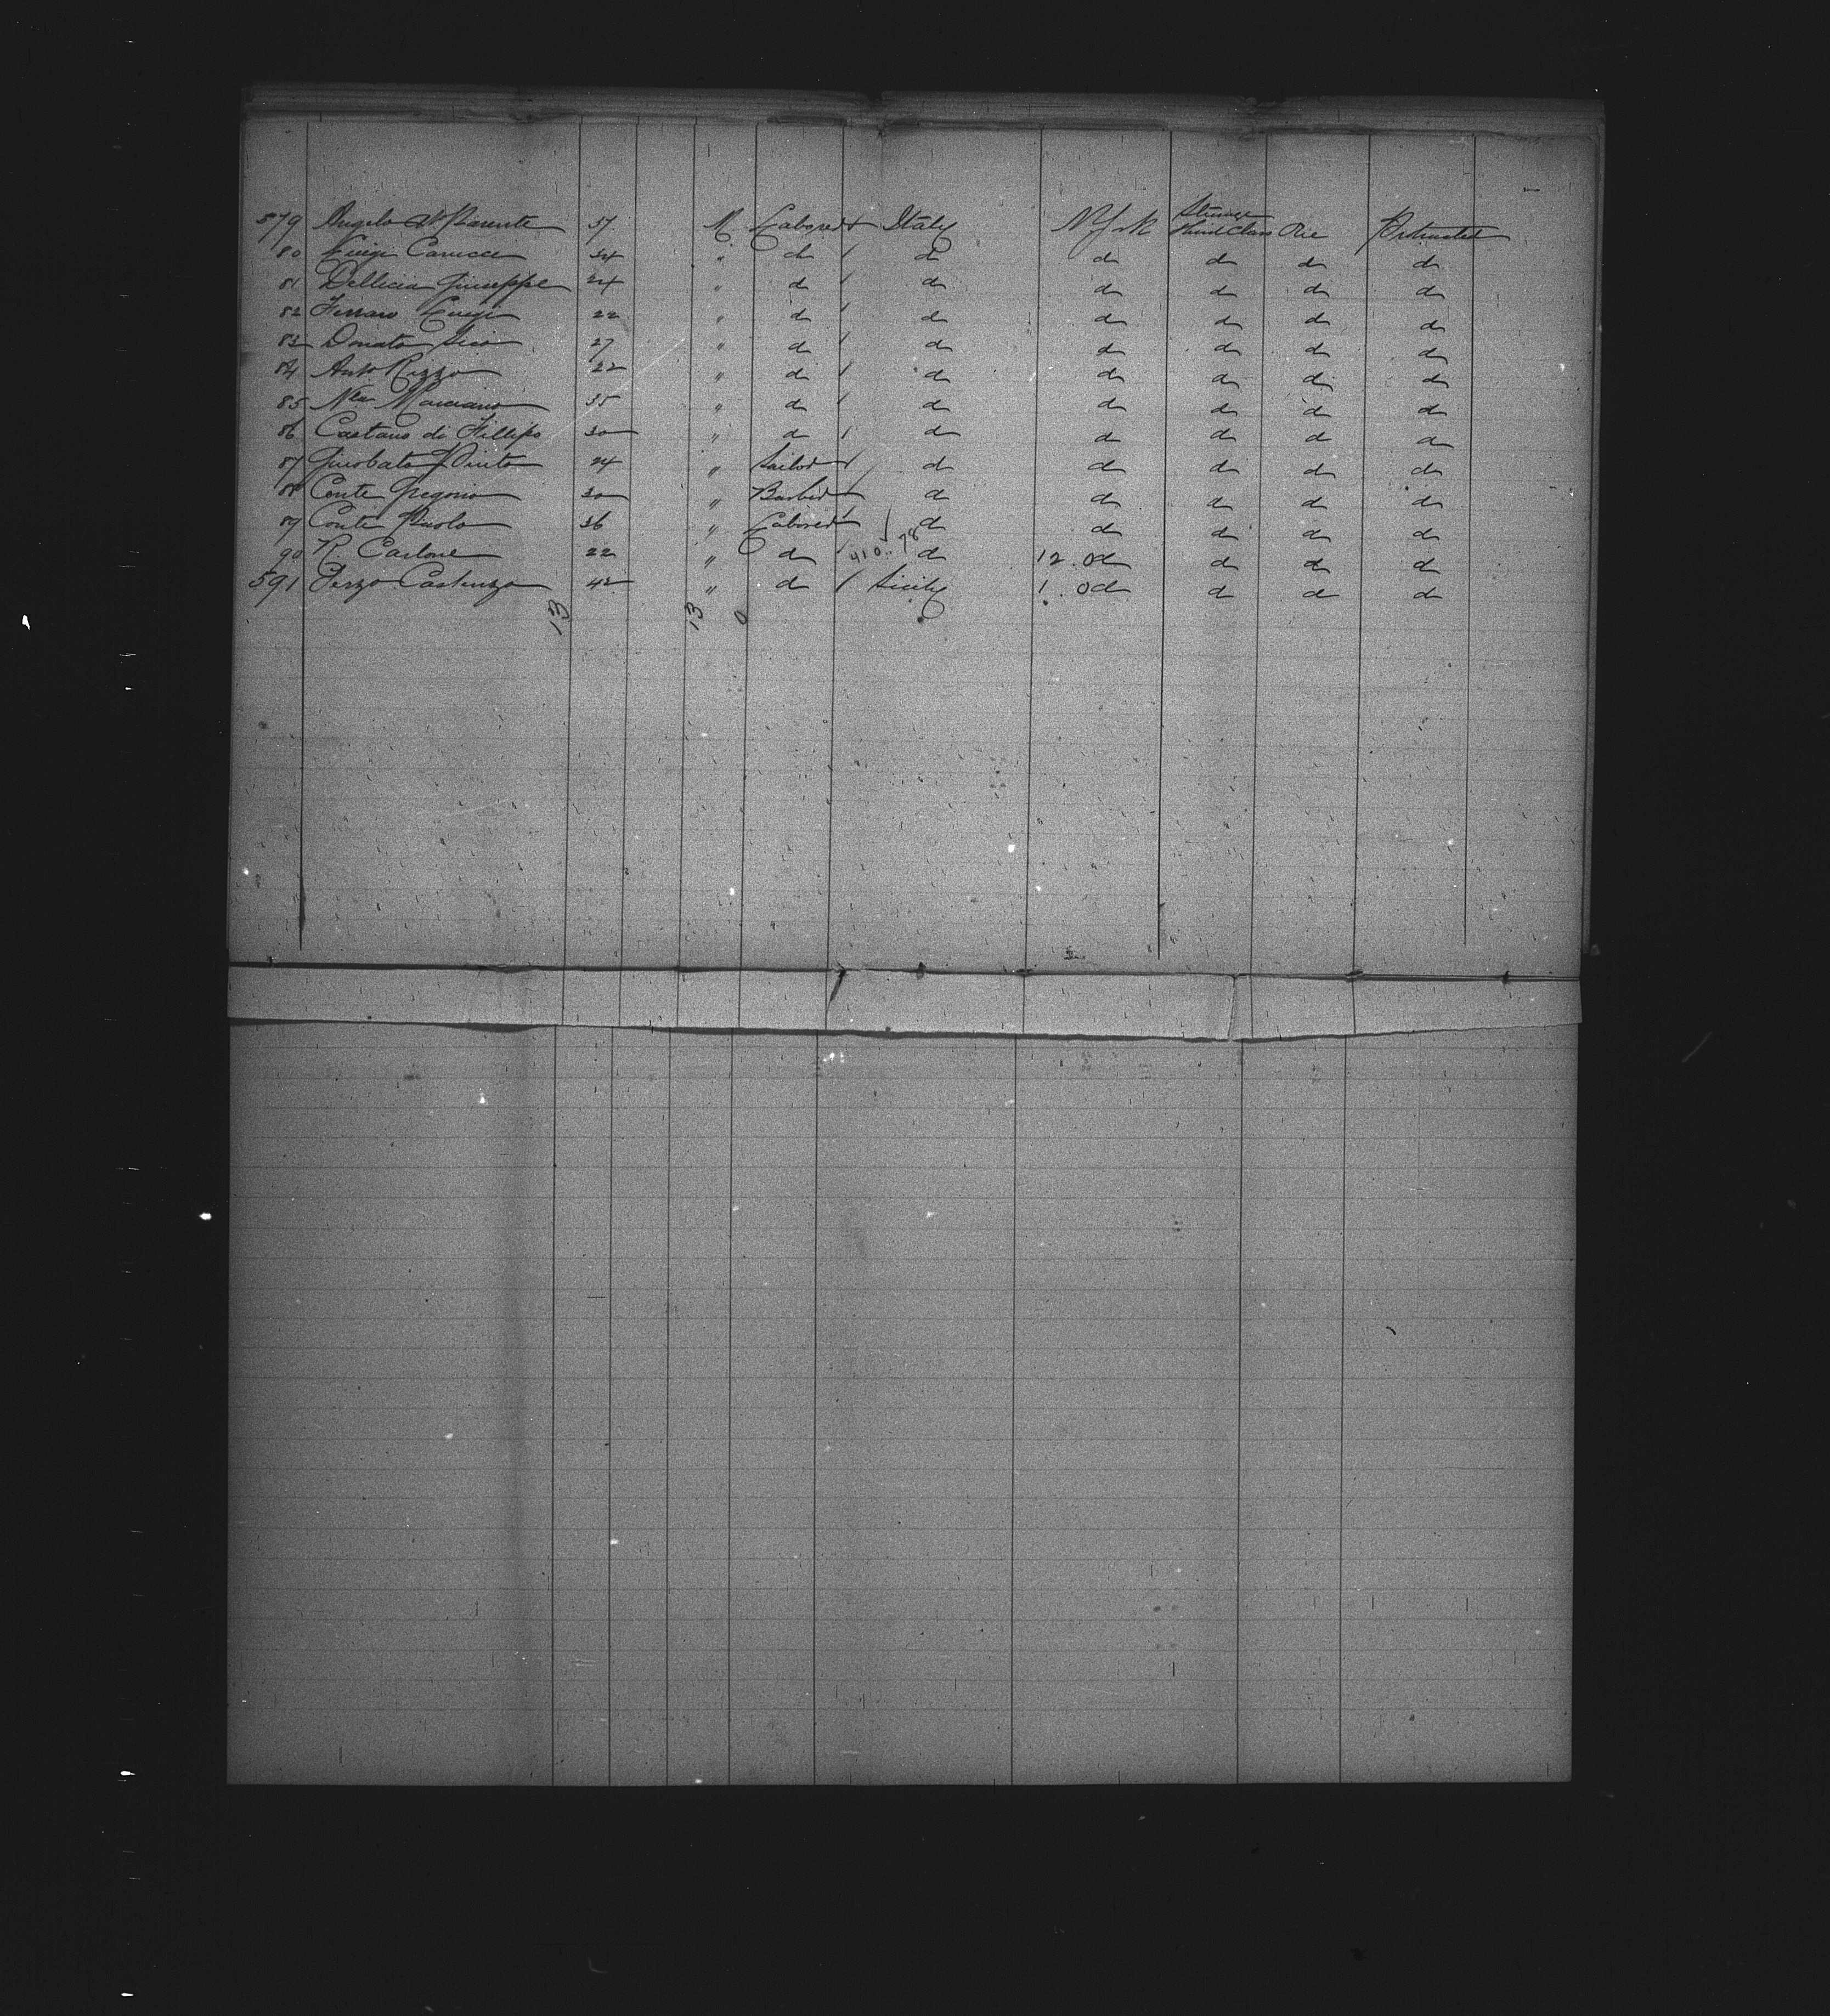 579 Angelo Parente 37 M Laborer Italy N York Steerage Third Class One Protracted
80 Luigi Carucci 34 " do / do do do do do
81 Dellicia Giuseppe 24 " do / do do do do do
82 Ferraro Luigi 22 " do / do do do do do
83 Donato Sico 27 " do / do do do do do
84 Anto Rizzo 22 " do / do do do do do
85 Nla Marciano 35 " do / do do do do do
86 Caetano di Fillipo 30 " do / do do do do do
87 Pinto 24 " Sailor / do do do do do
88 Conte Gregorio 30 " Barber do do do do do
89 Conte Paolo 36 " Laborer do do do do do
90 R. Carlone 22 " do 410.. 78 do 12 . do do do do
591 42 " do / Sicily 1 . do do do do
13 13 0